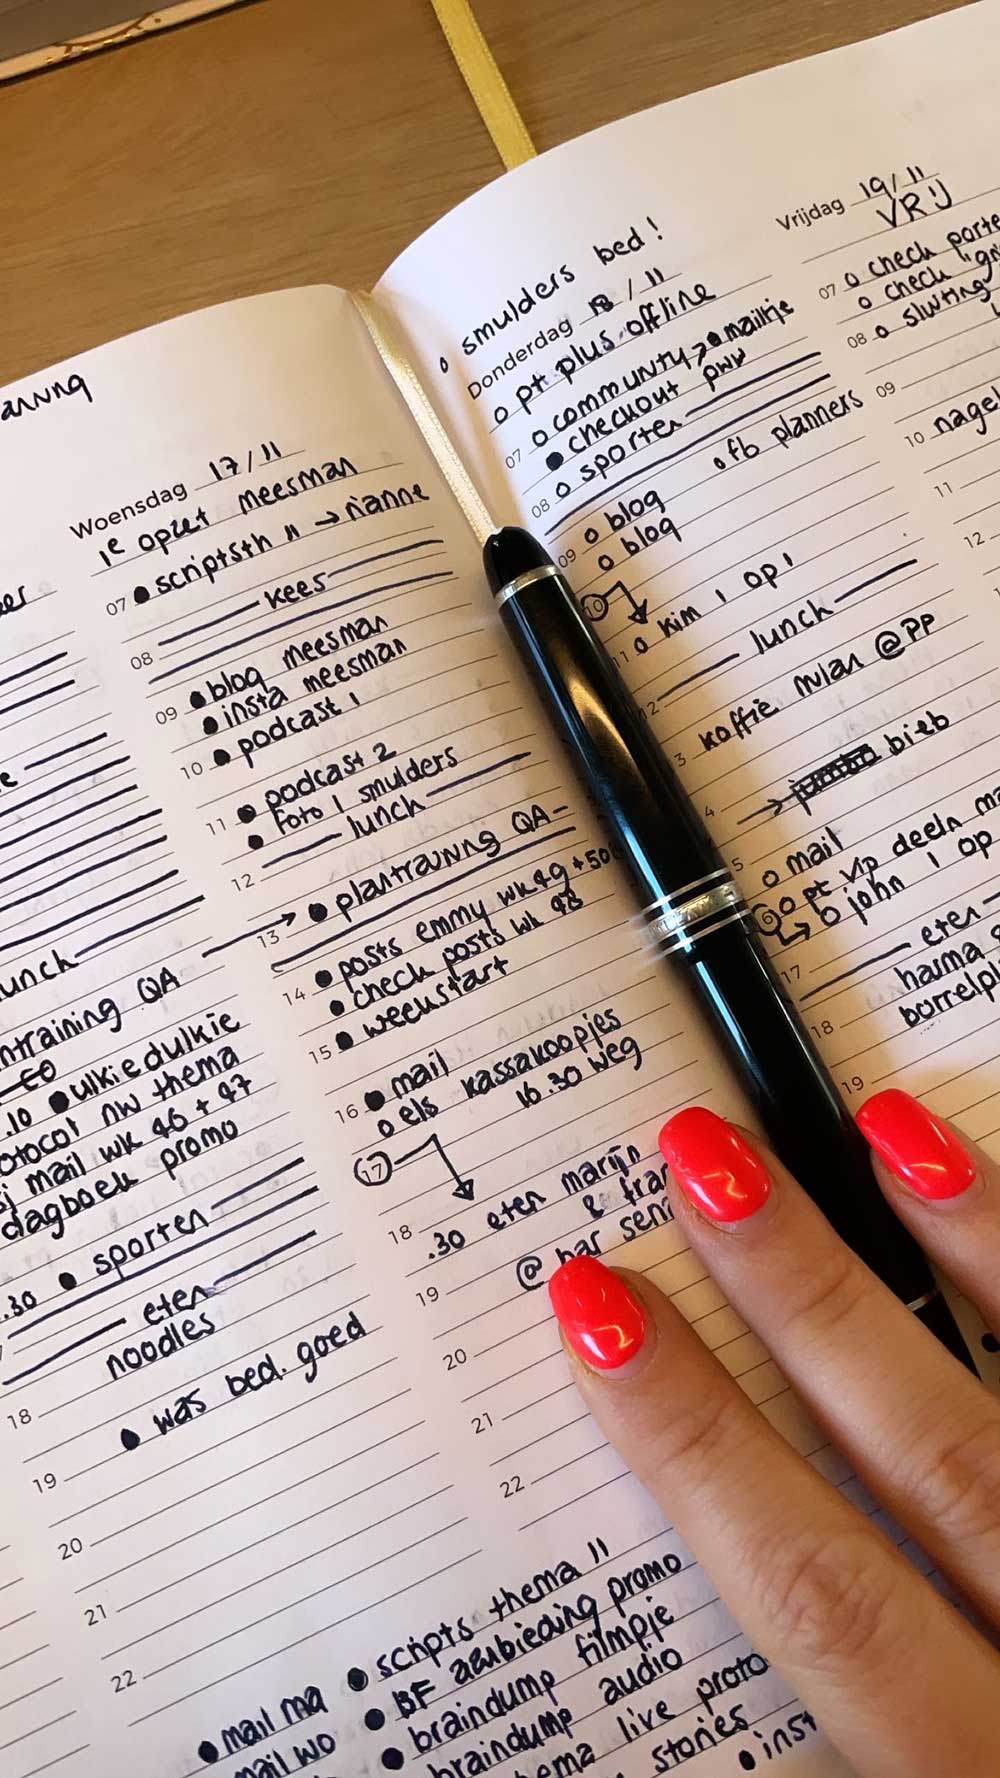 unch
ntraining QA
.10 ulkiedulkie
otocol nw thema
mail wk 46 + 47
dagboek promo
.30 sporten
eten
noodles
18
was bed. goed
19
20
21
22
Woensdag 17/11
1e opzet meesman
07 scriptsth 11 → rianne
kees
08
blog meesman
09 insta meesman
10 podcast 1
podcast 2
11 foto 1 smulders
lunch
12
13 → plantraining QA
posts emmy wk 49 + 50
14 check posts wk 48
weekstart
15
mail
16 els kassakoopjes
16.30 weg
17
18 .30 eten marijn
&
19 @ bar
20
21
22
smulders bed!
Donderdag 18/11
pt plus offline
community > mailtje
07 checkout pww
08 sporten
fb planners
blog
09 blog
10
11 kim 1 op 1
lunch
12
3 koffie mylan @PP
4 → jumbo bieb
5 mail
6 pt vip deeln
john 1 op
17 eten
hasma
18 borrelpl
19
Vrijdag 19/11
VRIJ
07 check porte
check
08 sluiting
09
10 nagel
11
12
scripts thema 11
mail ma
BF aanbieding promo
mail wo
braindump filmpje
braindump audio
hema live proto
stories
inst